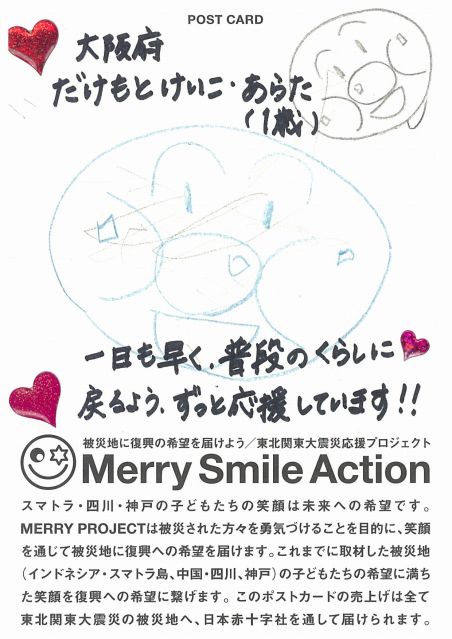 POST CARD
大阪府
だけもとけいこ・あらた
(1歳)
一日も早く、普段のくらしに
戻るよう、ずっと応援しています!!
被災地に復興の希望を届けよう/東北関東大震災応援プロジェクト
Merry Smile Action
スマトラ・四川・神戸の子どもたちの笑顔は未来への希望です。
MERRY PROJECTは被災された方々を勇気づけることを目的に、笑顔
を通じて被災地に復興への希望を届けます。これまでに取材した被災地
(インドネシア・スマトラ島、中国・四川、神戸)の子どもたちの希望に満ち
た笑顔を復興への希望に繋げます。このポストカードの売上げは全て
東北関東大震災の被災地へ、日本赤十字社を通して届けられます。